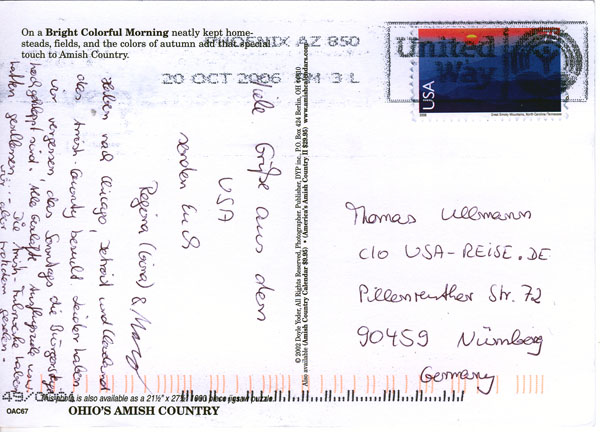 On a Bright Colorful Morning neatly kept home-
steads, fields, and the colors of autumn add that special
touch to Amish Country.
PHOENIX AZ 850
20 OCT 2006 PM 3 L
United
Way
USA
Great Smoky Mountains, North Carolina/Tennessee
Viele Grüße aus den
USA
senden Euch
Regina (Gina) &
haben nach Chicago, Detroit und Cleveland
das Amish-County besucht. Leider haben
wir vergessen, dass Sonntags die Bürgersteige
hochgeklappt sind. Alle
hatten geschlossen
© 2002 Doyle Yoder, All Rights Reserved, Photographer. Publisher, DYP inc. P.O. Box 424 Berlin, OH 44610
Also available (Amish Country Calendar $9.95) • (America's Amish Country II $29.95) www.amishcalendars.com
Thomas Ullmann
c/o USA-REISE.DE
Pillenreuther Str. 72
90459 Nürnberg
Germany
This photo is also available as a 21½" x 27½" 1000 piece jigsaw puzzle.
OAC67
OHIO'S AMISH COUNTRY